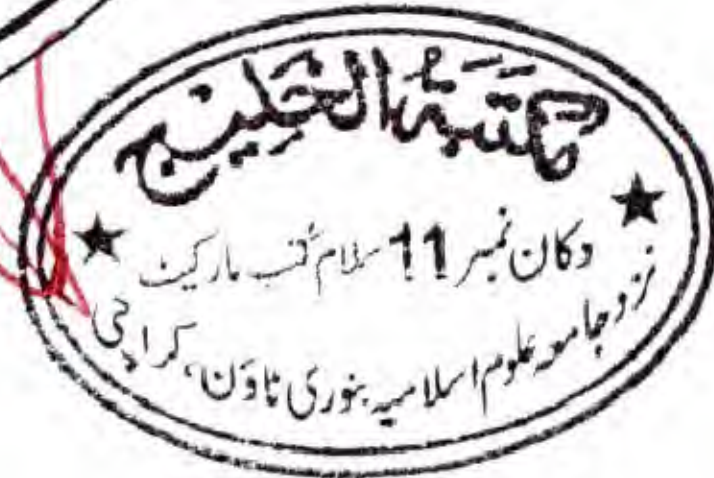 مَکتَبَۃُ الخَلِیْج
دکان نمبر 11 سلام کتب مارکیٹ
نزد جامعہ علوم اسلامیہ بنوری ٹاؤن، کراچی